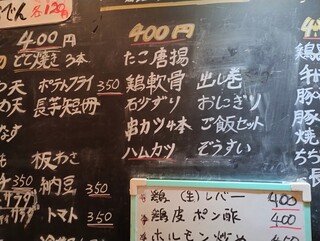 でん 各120円
400円
とと焼き 3本
の天 ポテトフライ 350
の天 長芋短冊
なす
も 板わさ
350 納豆 350
サラダ トマト 350
400円
たこ唐揚
鶏軟骨 出し巻
石少ずり おにぎり
串カツ4本 ご飯セット
ハムカツ ぞうすい
鶏(生)レバー 400
鶏皮ポン酢 400
ホルモン炒め 400